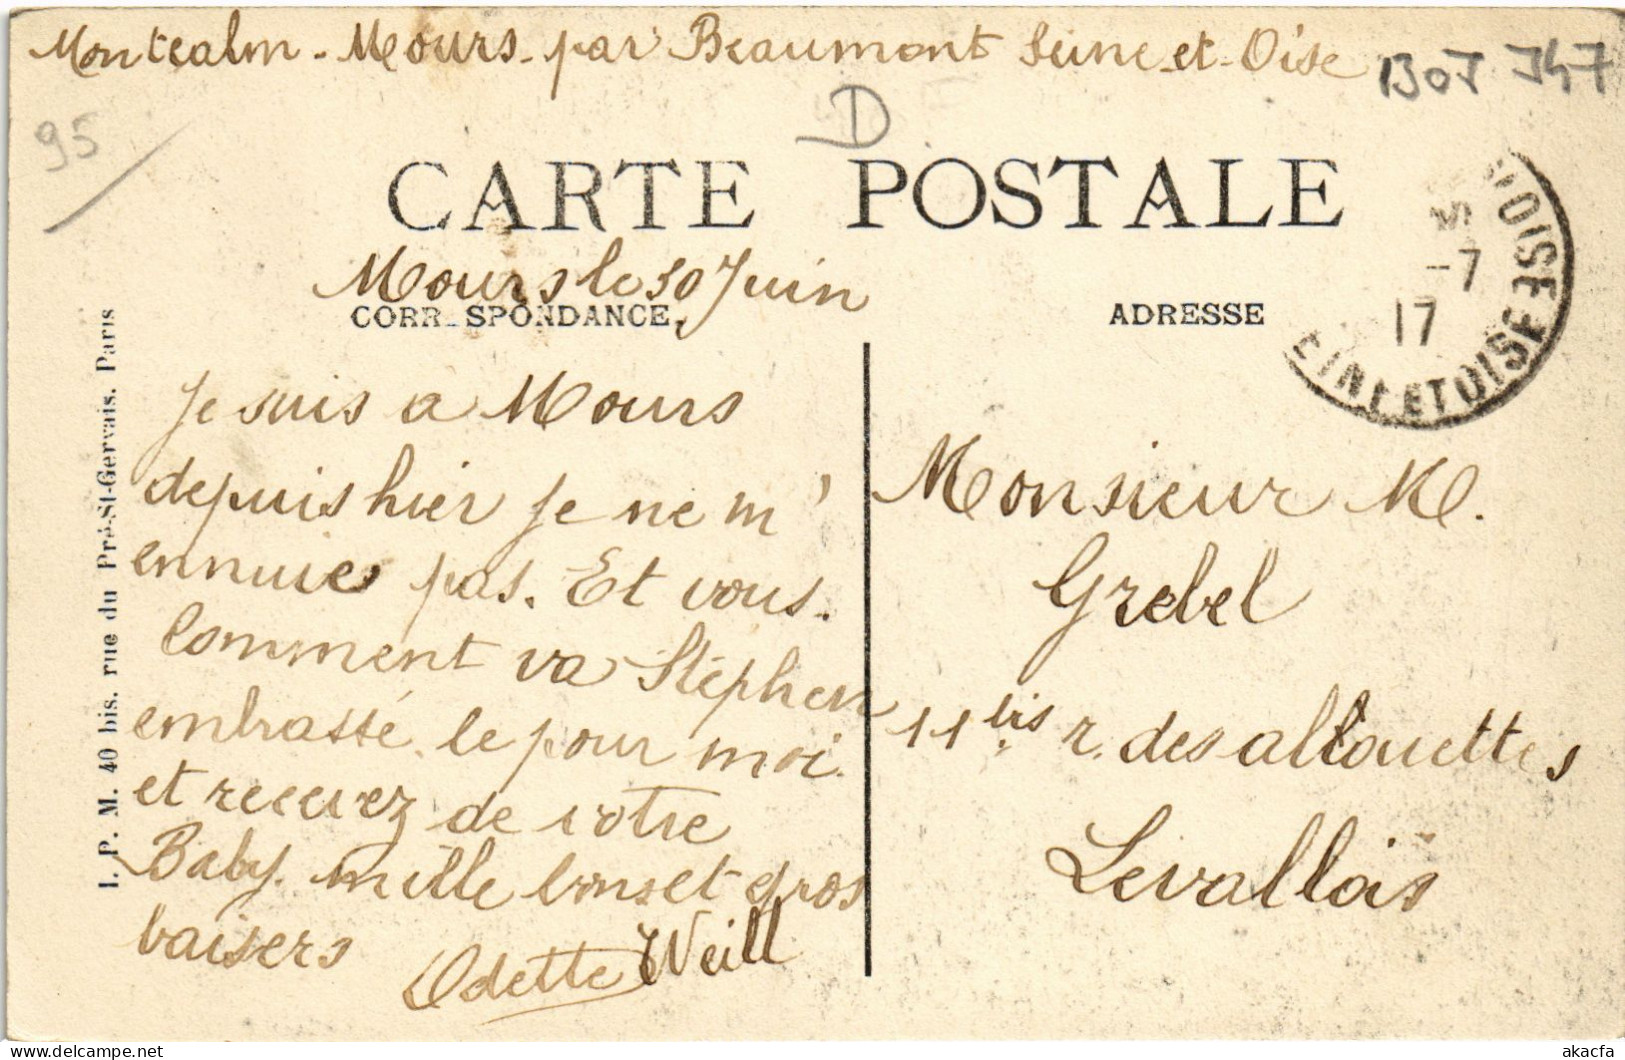 Montcalm - Mours - par Beaumont Seine-et-Oise
1307 J47
95
D
CARTE POSTALE
Mours le 30 Juin
CORRESPONDANCE
ADRESSE
-7
17
OISE
SEINE ET OISE
Je suis a Mours
depuis hier je ne m'
ennuie pas. Et vous.
Comment va Stéphen
embrassé le pour moi.
et recevez de votre
Baby. mille bons et gros
baisers
Odette Weill
Monsieur M.
Grebel
11 bis r. des allouettes
Levallois
I. P. M. 40 bis. rue du Pré-St-Gervais. Paris
akacfa